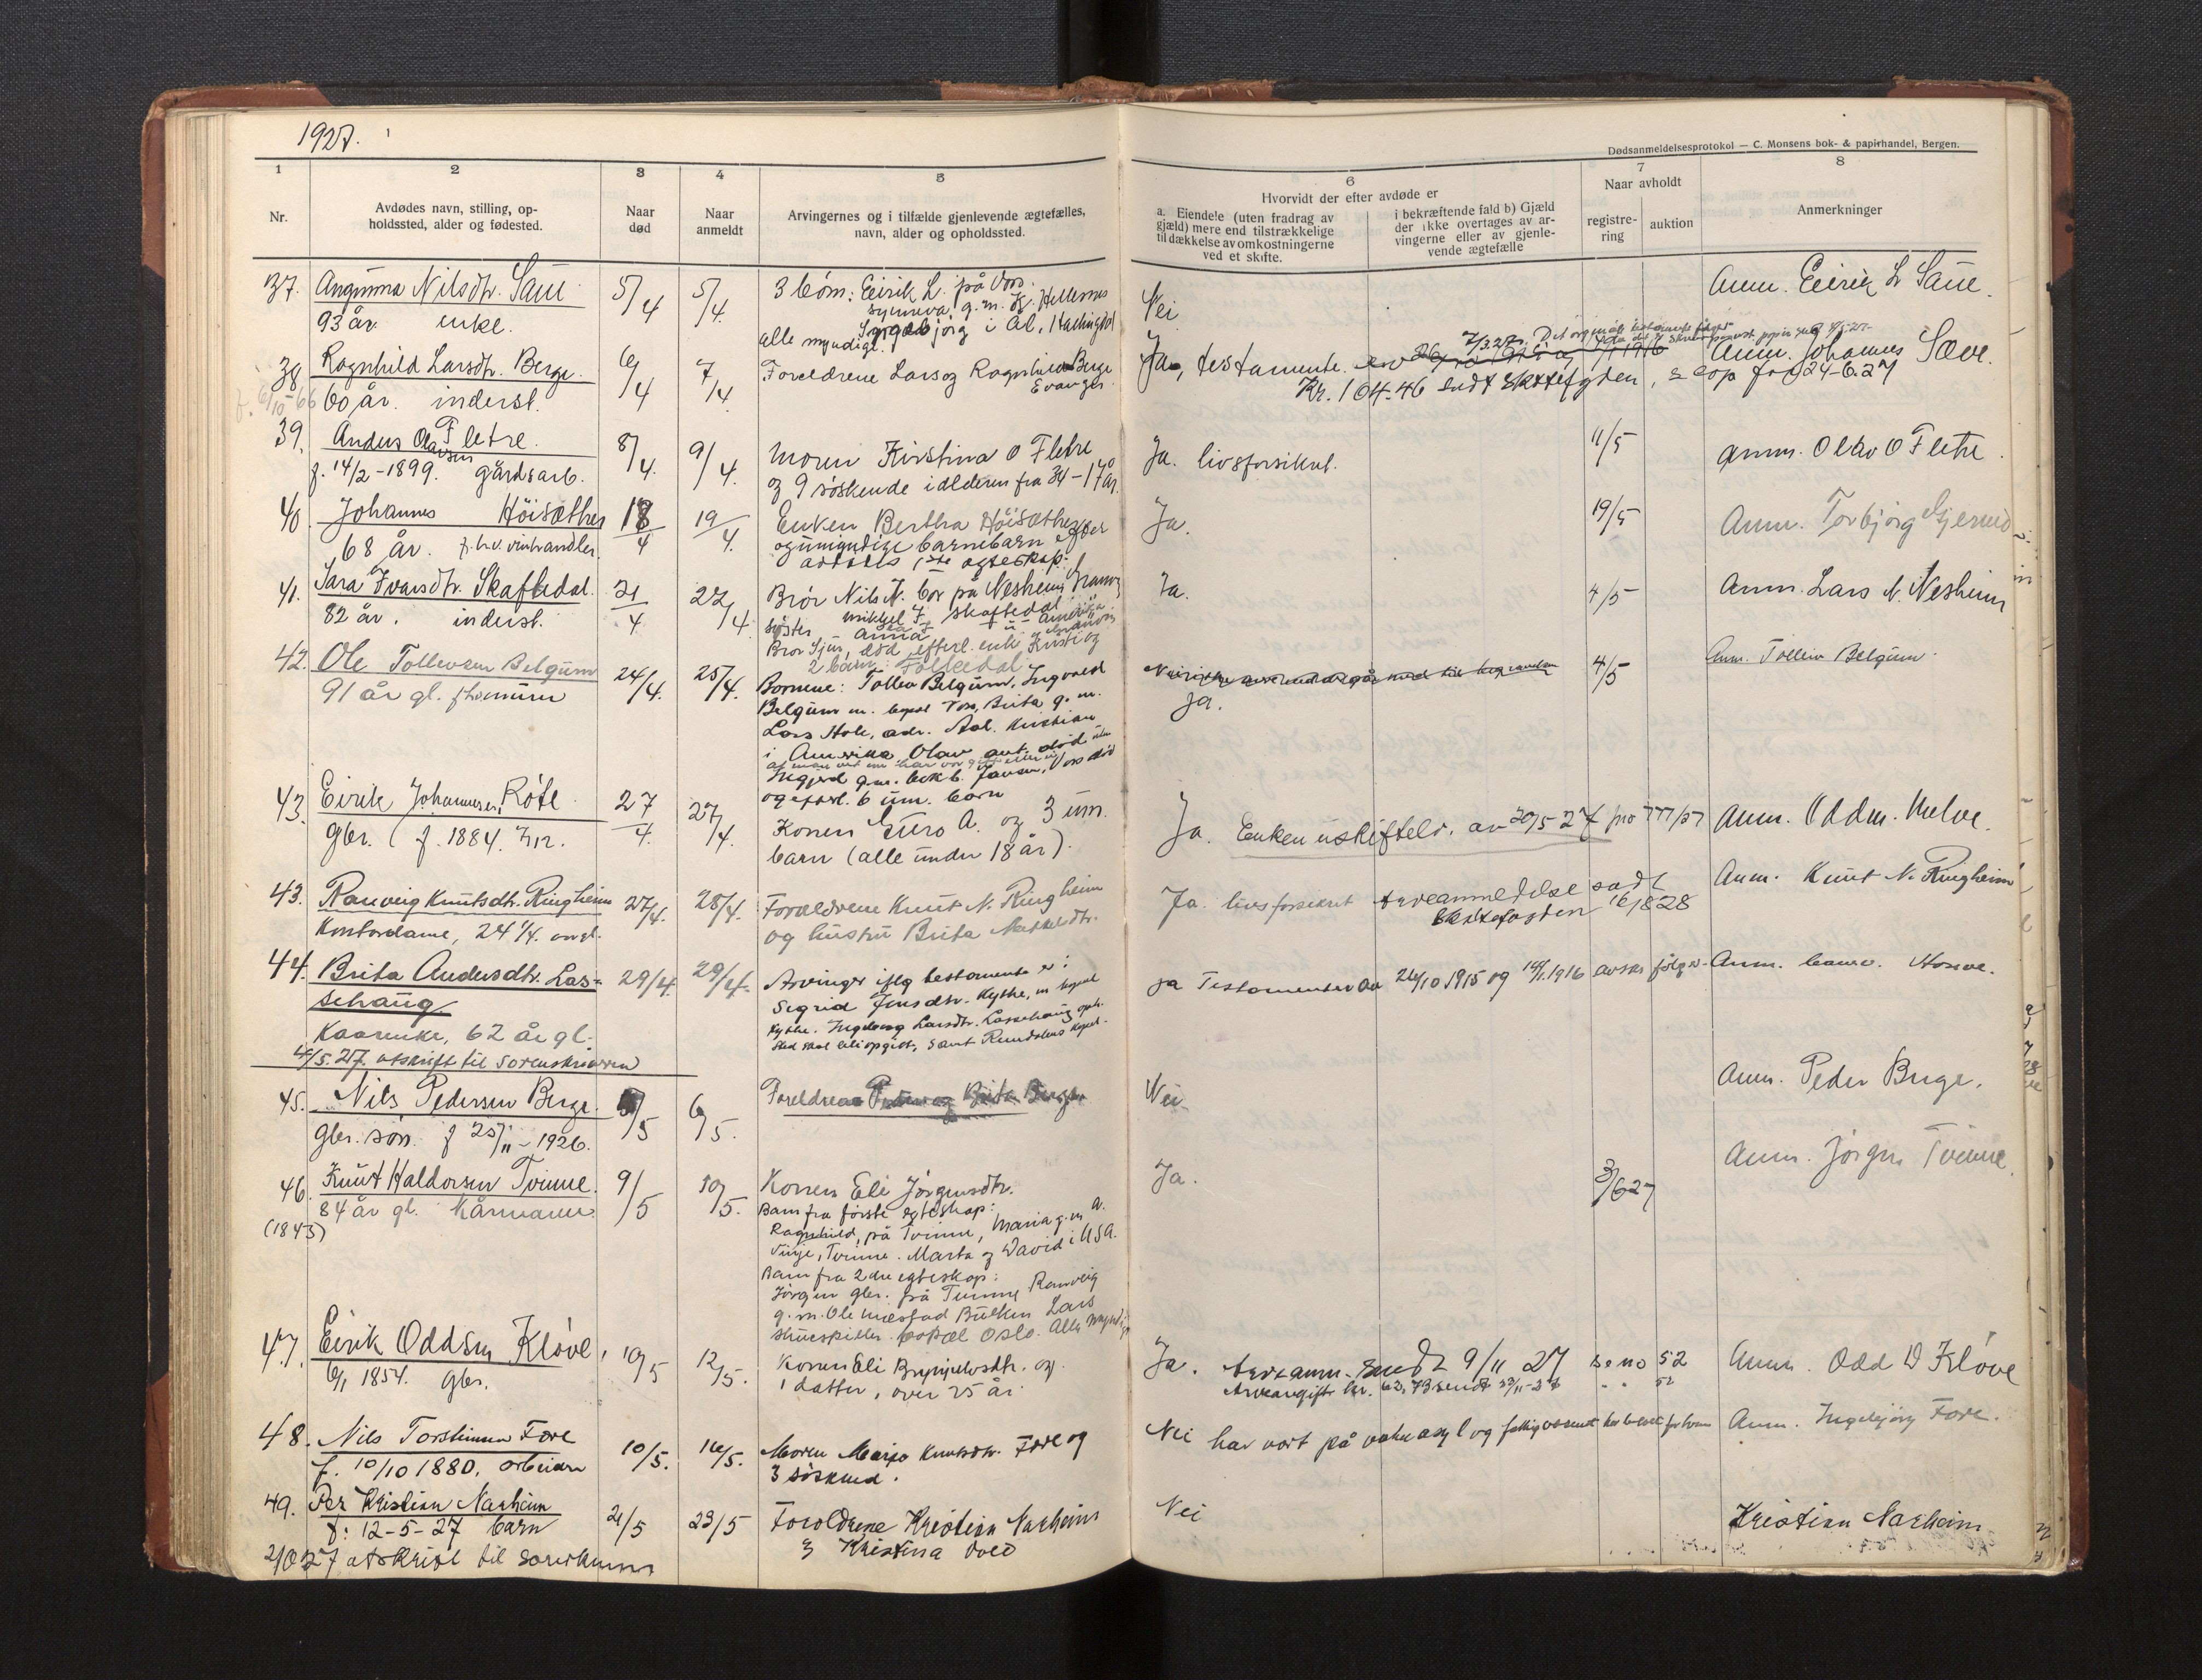 1927.
Dødsanmeldelsesprotokol — C. Monsens bok- & papirhandel, Bergen.
1 2 3 4 5 6 7 8
Nr.
Avdødes navn, stilling, op-
holdssted, alder og fødested.
Naar
død
Naar
anmeldt
Arvingernes og i tilfælde gjenlevende ægtefælles,
navn, alder og opholdssted.
Hvorvidt der efter avdøde er
a. Eiendele (uten fradrag av
gjæld) mere end tilstrækkelige
til dækkelse av omkostningerne
ved et skifte.
i bekræftende fald b) Gjæld
der ikke overtages av ar-
vingerne eller av gjenle-
vende ægtefælle
Naar avholdt
registre-
ring
auktion
Anmerkninger
37. Nilsdtr. Saue 5/4 5/4. 3 børn: Eirik L. på Voss.
93 år. enke.
g.m. K. Hellesnes
i Ål, Hallingdal
alle myndige.
Nei
Anm. Eirik L Saue.
38 Ragnhild Larsdtr. Berge. 6/4 7/4. Foreldrene Lars og Ragnhild Berge
Evanger.
60 år. inderst.
Ja, testamente
Kr. 104.46 sendt skattefgden, 24-6.27
Anm. Johannes Sæve.
39. Anders Olavsen Fletre. 8/4. 9/4. Moren Kirstina O Fletre
f. 14/2-1899. gårdsarb.
og 9 søskende i alderen fra 34-17 år.
Ja. livsforsikret. 11/5 anm. Olav O Fletre.
40. Johannes Höisæther 18/4 19/4. Enken Bertha Höisæther
68 år. f.h.v. vinhandler.
og umyndige barnebarn efter
avdødes 1ste egteskap.
Ja. 19/5 Anm. Torbjörg Gjerme
41. Sara Ivarsdtr. Skaftedal. 21/4 22/4 Bror Nils N. bor på Nesheim, Granvin
82 år. inderst.
søster Anna
Bror Sjur, død, efterl. enke Kristi og
2 barn: Folkedal
Ja. 4/5 Anm. Lars N. Nesheim
42. Ole Tollevsen Belgum 24/4. 25/4. Bornene: Tollev Belgum, Ingvald
91 år gl.
Belgum m. bopæl Voss, Brita g. m.
Lars Hole, adr. Aal. Kristian
i Amerika Olav ant. død
Ingjerd g.m. Jansen, Voss død
og efterl. 6 um. barn
Ja. 4/5 Anm. Tolleiv Belgum.
43. Eirik Johannesen Røte. 27/4. 27/4. Konen Guro A. og 3 um.
gbr. (f. 1884.
barn (alle under 18 år).
Ja. Enken uskiftebr. av 20/5 27 jno 777/27 Anm. Odd M. Melve.
43. Ranveig Knutsdtr. Ringheim 27/4. 28/4. Foreldrene Knut N. Ringheim
Kontordame, 24 1/4. år gl.
og hustru Brita
Ja. livsforsikret Arveanmeldelse sendt
skattefogden 16/8 28
Anm. Knut N. Ringheim
44. Brita Andersdtr. Las-
sehaug.
29/4. 29/4. Arvinger iflg testamente er:
Sigrid Jensdtr. Kythe, m bopæl
Kythe. Ingeborg Larsdtr. Lassehaug oph.
sted skal bli opgitt, samt Rundalens kapel.
Kaarenke, 62 år gl.
4/5. 27. avskrift til sorenskriveren
Ja Testamenter av 26/10 1915 og 14/1.1916 avskr. følger.
45. Nils Pedersen Berge. 5/5 6/5. Foreldrene Peder og Brita Berge
gbr. søn. f 25/11-1926.
Nei. Anm. Peder Berge.
46. Knut Haldorsen Tvinne. 9/5 10/5. Konen Eli Jörgensdtr.
84 år gl. Kårmann.
(1843)
Barn fra første egteskap:
Ragnhild, på Tvinne, Maria g. m A.
Vinje, Tvinne. Marta og David i USA.
Barn fra 2det egteskap:
Jörgen gbr. på Tvinne, Ranveig
g. m. Ole Bulken Lars
skuespiller bopæl Oslo. Alle myndige
Ja. 3/6 27 Anm. Jörgen Tvinne.
47. Eirik Oddsen Kløve, 10/5 12/5. Konen Eli Brynjulvsdtr. og
6/1 1854. gbr.
1 datter, over 25 år.
Ja. Arveanm. sendt 9/11 27 52
Arveavgift kr. 62,73 sendt 23/11-27 " " 52
Anm. Odd O Kløve
48. Nils Torsteinsen Fore 10/5. 14/5. Moren Marjo Knutsdtr. Fore og
f. 10/10 1880, arbeider
3 søskend.
Nei har vært på asyl og fattigvæsenet har betalt for ham
Anm. Ingebjörg Fore.
49. Per Kristian Narheim 21/5 23/5 Foreldrene Kristian Narheim
f: 12-5-27 barn
og Kristina
Nei
Kristian Narheim
27 avskrift til